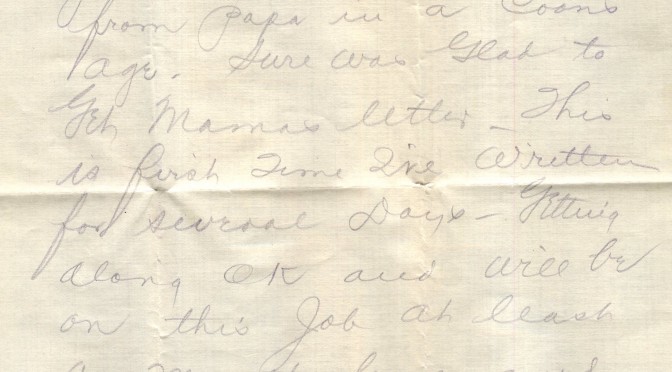 from Papa in a Coons
Age. Sure was Glad to
Get Mamas letter - This
is first Time I've Written
for several Days - Getting
along OK and will be
on this Job at least